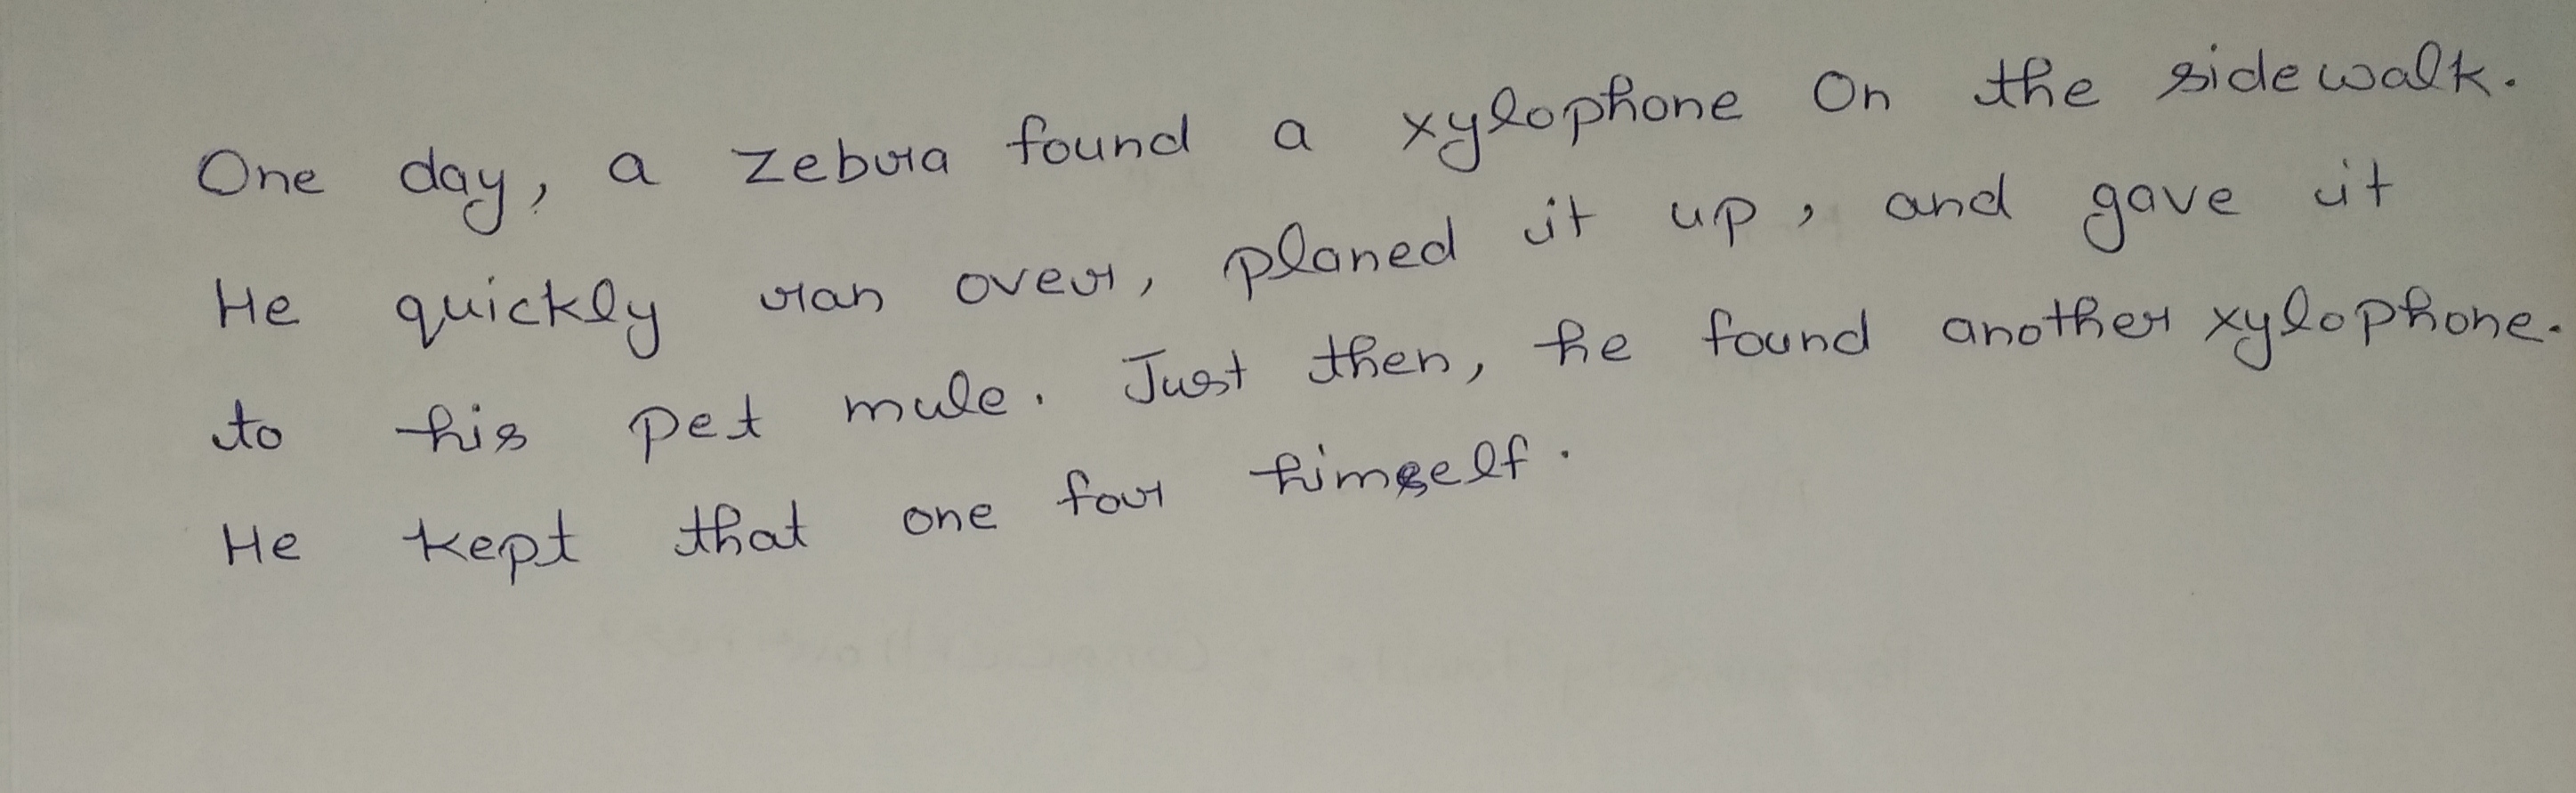 One day, a zebra found a xylophone On the sidewalk.
He quickly ran over, planed it up, and gave it
to his pet mule. Just then, he found another xylophone.
He kept that one for himself.